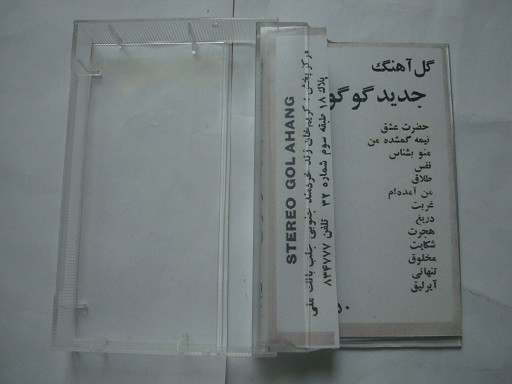 گل آهنگ
جدید گو گو
حضرت عشق
نیمه گمشده من
منو بشناس
نفس
طلاق
من آمده‌ام
غربت
دریغ
هجرت
شکایت
مخلوق
تنهائی
آیرلیق
STEREO GOL AHANG
مرکز پخش: کریم‌خان زند خردمند جنوبی جنب بانک ملی
پلاک ۱۸ طبقه سوم شماره ۳۲ تلفن ۸۳۴۷۷۷